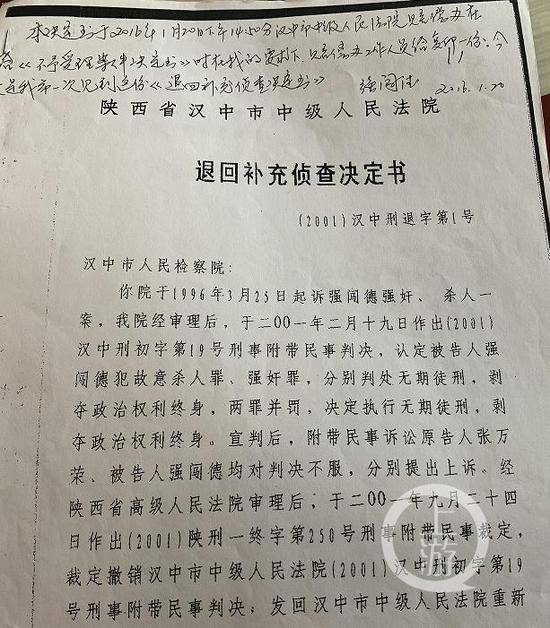 本决定书于2016年1月20日下午14:50分汉中市中级人民法院赔偿办在
《不予受理案件决定书》时在我的要求下,赔偿办工作人员给复印一份。今
是我第一次见到这份《退回补充侦查决定书》 强闯德 2016.1.20
陕西省汉中市中级人民法院
退回补充侦查决定书
(2001)汉中刑退字第1号
汉中市人民检察院:
你院于1996年3月25日起诉强闯德强奸、杀人一
案,我院经审理后,于二00一年二月十九日作出(2001)
汉中刑初字第19号刑事附带民事判决,认定被告人强
闯德犯故意杀人罪、强奸罪,分别判处无期徒刑,剥
夺政治权利终身,两罪并罚,决定执行无期徒刑,剥
夺政治权利终身。宣判后,附带民事诉讼原告人张万
荣、被告人强闯德均对判决不服,分别提出上诉。经
陕西省高级人民法院审理后,于二00一年九月二十四
日作出(2001)陕刑一终字第250号刑事附带民事裁定,
裁定撤销汉中市中级人民法院(2001)汉中刑初字第19
号刑事附带民事判决;发回汉中市中级人民法院重新
上游